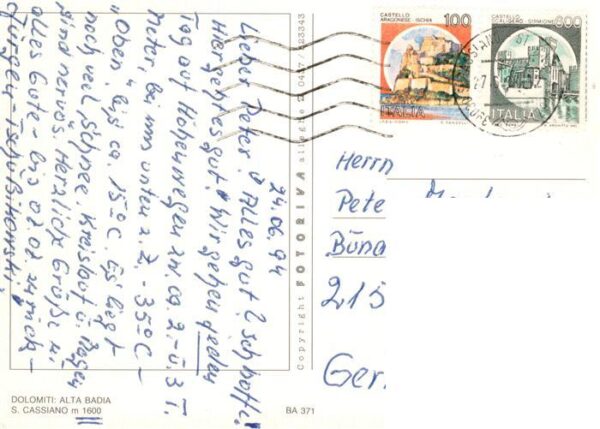 CASTELLO
ARAGONESE ISCHIA 100
ITALIA
CASTELLO
SCALIGERO SIRMIONE 600
ITALIA
24.06.94
Lieber Peter! Alles gut? Ich hoffe!
Hier geht es gut! Wir gehen jeden
Tag auf Höhenwegen zw. ca. 2.- ü. 3 T.
Meter bei uns unten z.Z. - 35°C -
"Oben" ca. 15°C. Es liegt
noch viel Schnee. Kreislauf ü. Magen
sind nervös. Herzliche Grüße ü.
alles Gute - bis 02.07. zurück -
Jürgen
Copyright FOTORIVA
Herrn
Pete
Büna
215
Ger.
DOLOMITI: ALTA BADIA
S. CASSIANO m 1600
BA 371